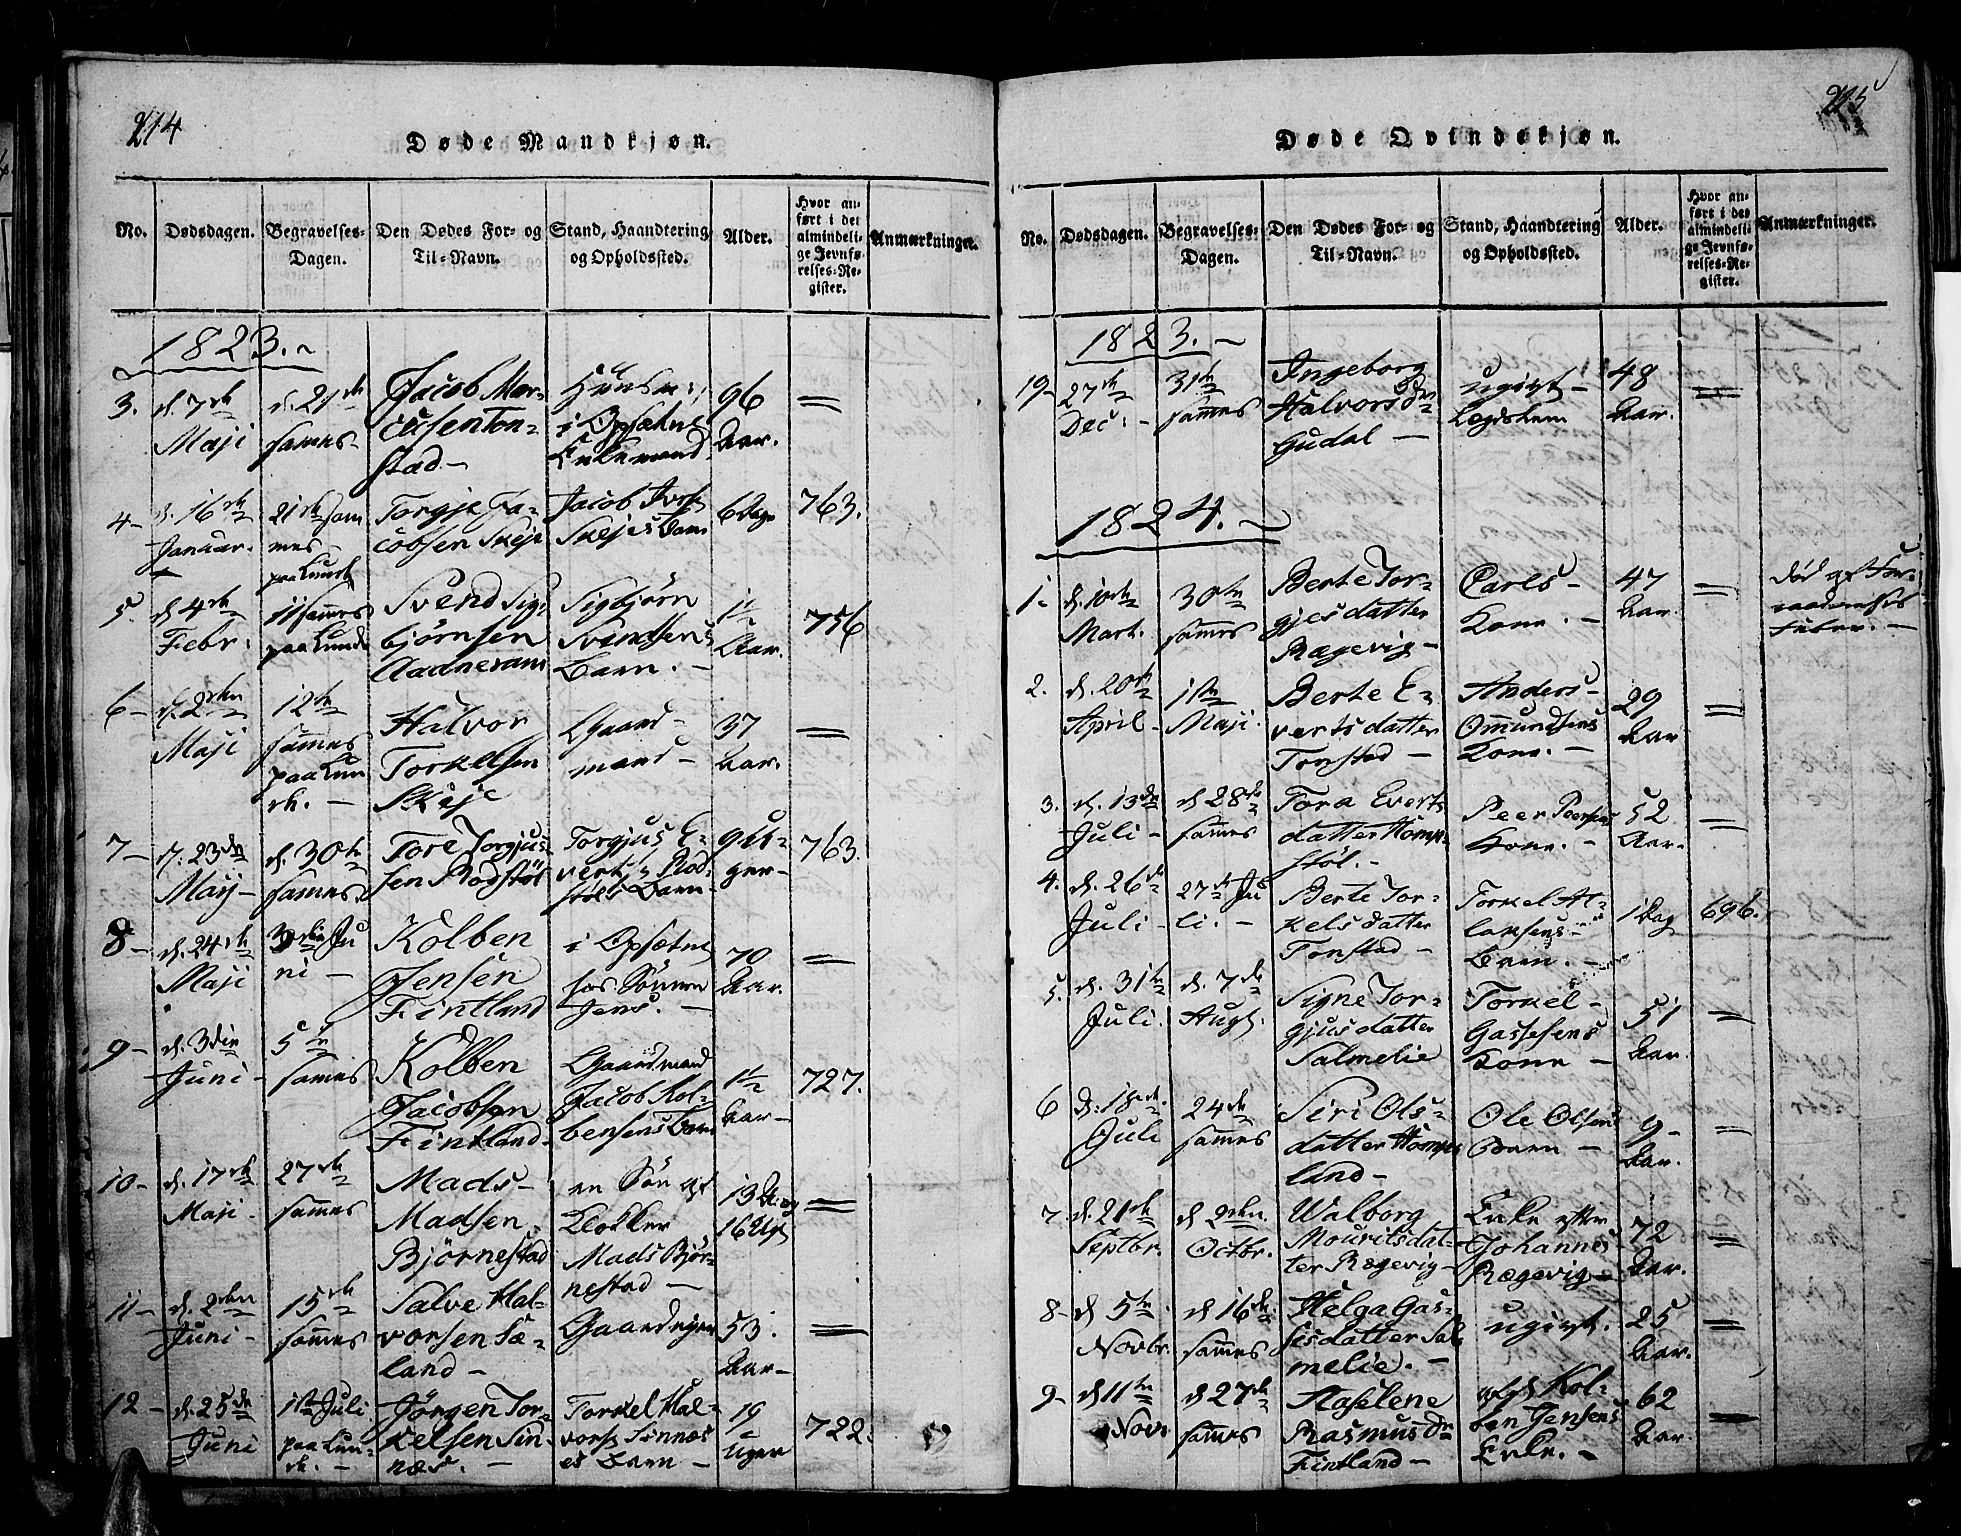 214
Døde Mandkjøn.
No. Dødsdagen. Begravelses-Dagen. Den Dødes For- og Til-Navn. Stand, Haandtering og Opholdssted. Alder. Hvor anført i det almindelige Jevnførelses-Register. Anmærkninger.
1823.
3. d. 7de Maji d. 21de sammes Jacob Mariusen Tonstad i Opsætni 96 Aar. =
4 d. 16de Januar. 21de sammes paa Lunde Torgje Jacobsen Skeje Jacob Skejes Barn 6 Dage 763.
5. d. 4de Febr. 11 sammes paa Lunde Svend Sigbjörnsen Aadneram Sigbjörn Svendsens Barn. 1½ Aar. 756
6 d. 2den Maji 12te sammes paa Lunde. Halvor Torkelsen Skeje Gaardmand 37 Aar. =
7 d. 23de Maij d. 30te sammes. Tore Torgjussen Rodstöl Torgjus Everts. Rodstöls Barn 9 Uger 763.
8 d. 24de Maji Juni Kolben Jensen Fintland i Opsætni hos Sönnen Jens. 70 Aar. =
9 d. 3die Juni 5te sammes Kolben Jacobsen Fintland Gaardmand Jacob Kolbensens Barn 1½ Aar 727.
10 d. 17de Maji 27de sammes Mads Madsen Björnestad en Sön af Klokker Mads Björnestad 13 A. og 16 Ug. =
11 d. 2den Juni 15de sammes Salve Halvorsen Sæland Gaardejer 53. Aar =
12 d. 25de Juni 1ste Juli paa Lunde. Jörgen Torkelsen Sinnæs. Torkel Halvors. Sinnæses Barn 19 Uger 722.
215
Døde Qvindekjøn.
No. Dødsdagen. Begravelses-Dagen. Den Dødes For- og Til-Navn. Stand, Haandtering og Opholdssted. Alder. Hvor anført i det almindelige Jevnførelses-Register. Anmærkninger.
1823.
19 27de Dec. 31te sammes Ingeborg Halvorsdr Gudal ugivt Lægdslem 48 Aar. =
1824.
1. d. 10de Mart. 30te sammes Berte Torgjesdatter Rægevig Carls Kone. 47 Aar = död af Forraadnelses Feber.
2. d. 20de April 1ste Maji. Berte Evertsdatter Tonstad Anders Omundsens Kone. 29 Aar =
3. d. 13de Juli d 28de sammes Tora Evertsdatter Hompstöl. Peer Peersens Kone. 52 Aar. =
4. d. 26de Juli 27de Juli. Berte Torkelsdatter Tonstad Torkel Atlaksens Barn. 1 Dag 696.
5. d. 31te Juli. d. 7de Augt. Signe Torgjusdatter Salmelie Torkel Gassesens Kone 51 Aar. =
6 d. 18de Juli 24de sammes Siri Olsdatter Hompland Ole Olsens Barn 9 Aar. =
7. d. 21de Septbr. d 2den Octbr. Walborg Mouritsdatter Rægevig Enke efter Johannes Rægevig 72 Aar. =
8 d 5te Novbr. d 16de sammes Helga Gassesdatter Salmelie. ugivt. 25 Aar. =
9 d 11te Novr d 27de sammes Haselene Rasmusdr Fintland afgl. Kolben Jensens Enke. 62 Aar. =